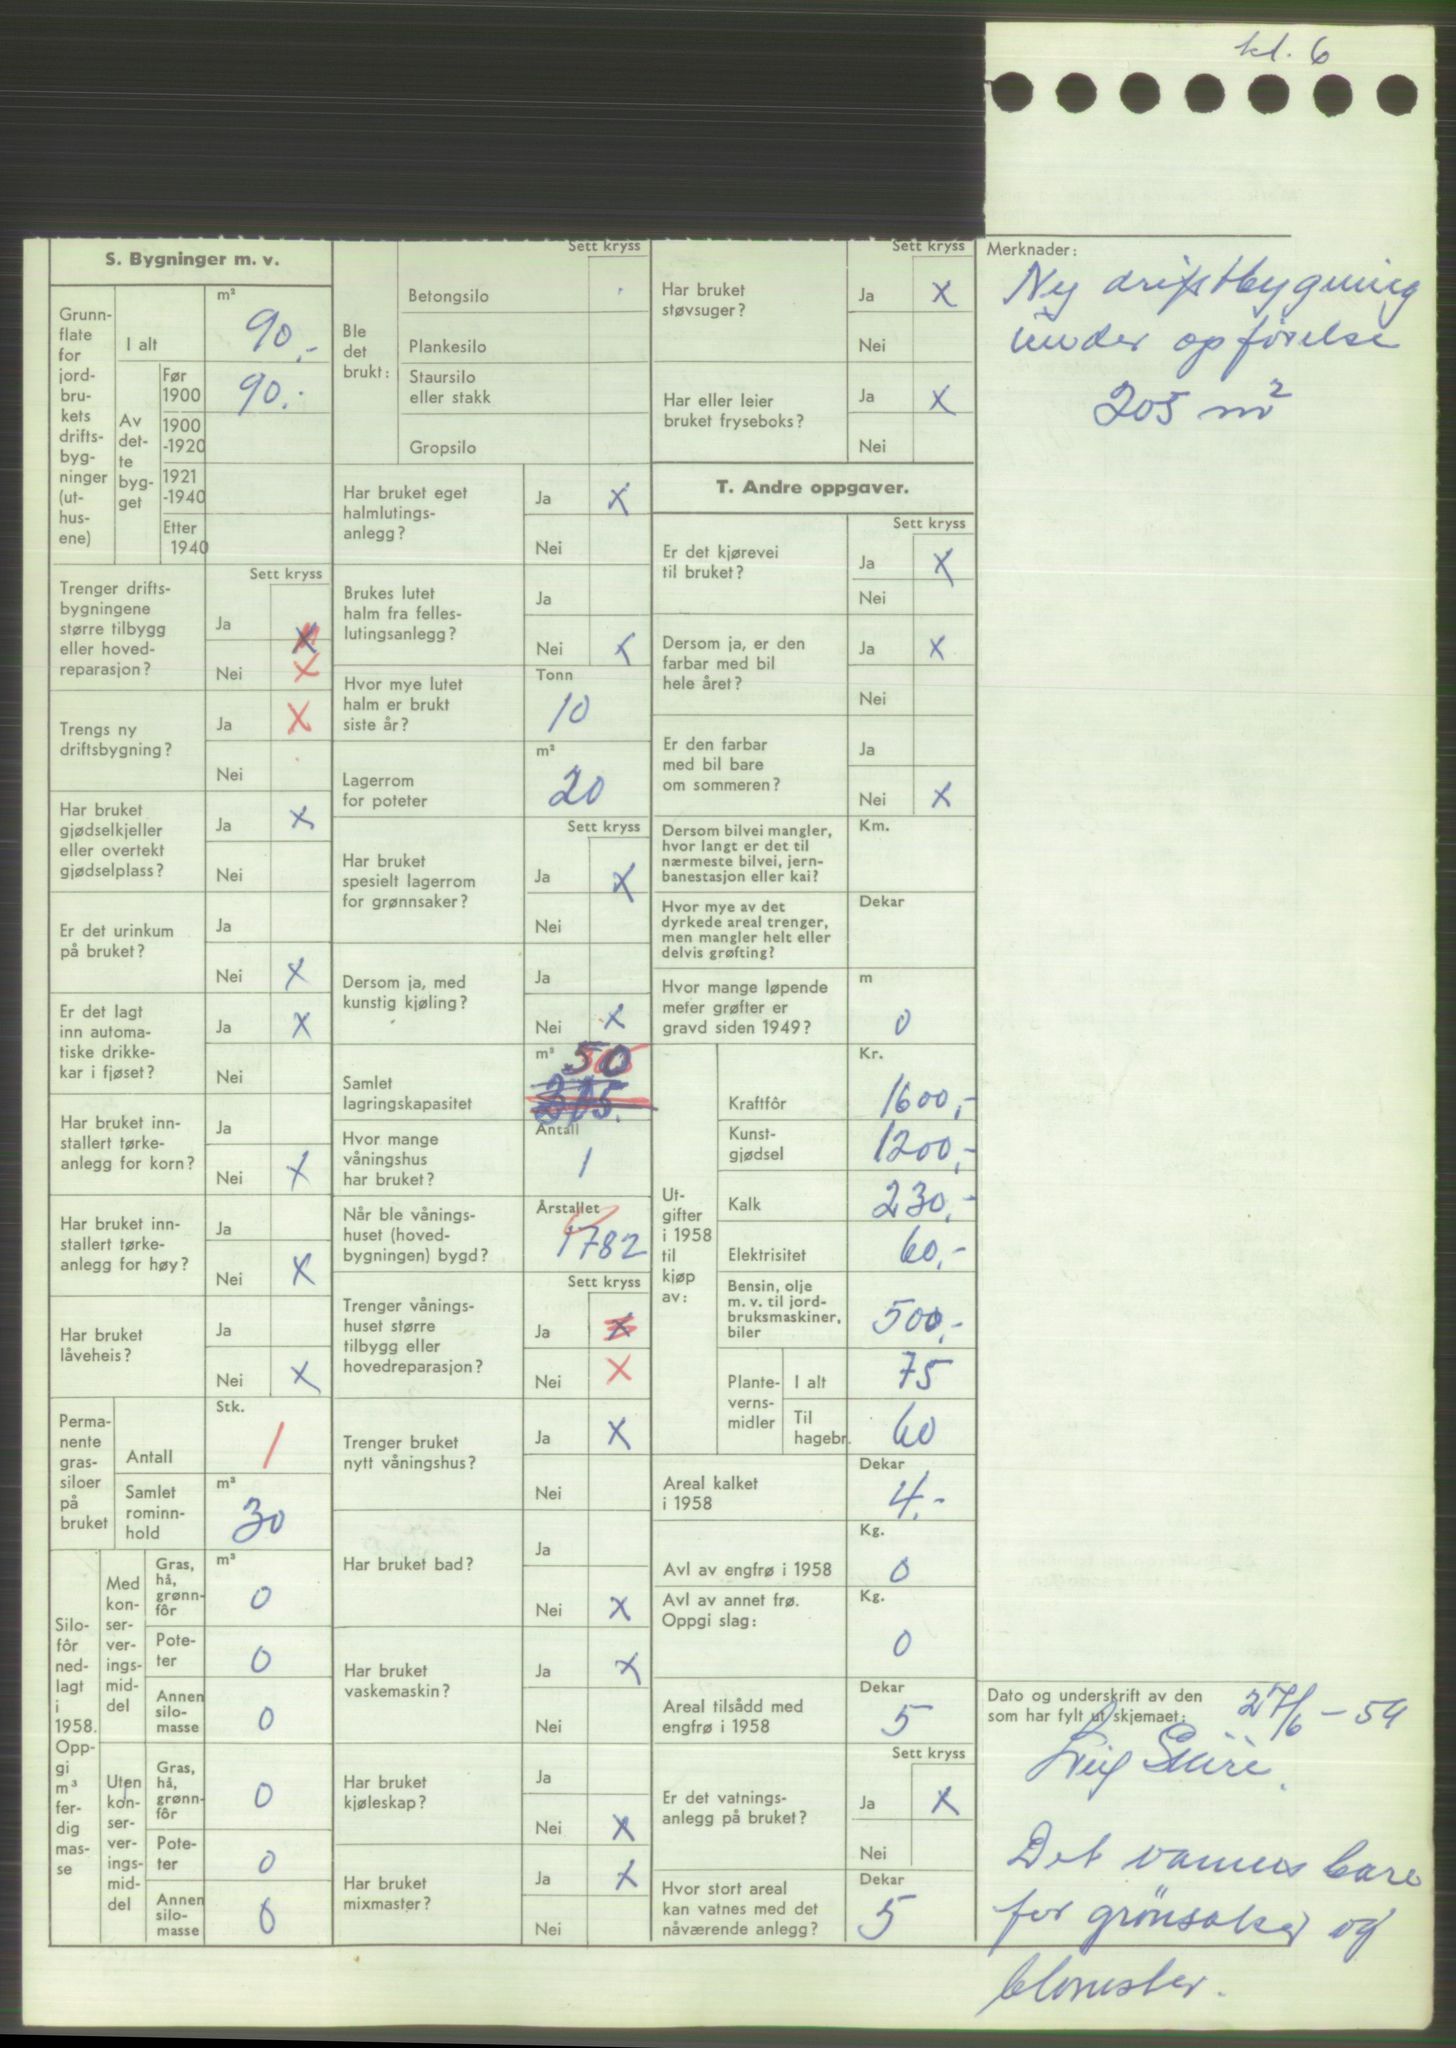 kl. 6
S. Bygninger m. v.
Grunn-
flate
for
jord-
bru-
kets
drifts-
byg-
ninger
(ut-
hus-
ene)
I alt
m²
90,-
Av
det-
te
byg-
get
Før
1900
90.-
1900
-1920
1921
-1940
Etter
1940
Sett kryss
Trenger drifts-
bygningene
større tilbygg
eller hoved-
reparasjon?
Ja
X
Nei
X
Trengs ny
driftsbygning?
Ja
X
Nei
Har bruket
gjødselkjeller
eller overtekt
gjødselplass?
Ja
X
Nei
Er det urinkum
på bruket?
Ja
Nei
X
Er det lagt
inn automa-
tiske drikke-
kar i fjøset?
Ja
X
Nei
Har bruket inn-
stallert tørke-
anlegg for korn?
Ja
Nei
X
Har bruket inn-
stallert tørke-
anlegg for høy?
Ja
Nei
X
Har bruket
låveheis?
Ja
Nei
X
Perma-
nente
gras-
siloer
på
bruket
Antall
Stk.
1
Samlet
rominn-
hold
m³
30
Silo-
fôr
ned-
lagt
i
1958.
Opp-
gi
m³
fer-
dig
mas-
se
Med
kon-
ser-
ver-
ings-
mid-
del
Gras,
hå,
grønn-
fôr
m³
0
Pote-
ter
0
Annen
silo-
masse
0
Uten
kon-
ser-
ver-
ings-
mid-
del
Gras,
hå,
grønn-
fôr
0
Pote-
ter
0
Annen
silo-
masse
0
Sett kryss
Ble
det
brukt:
Betongsilo
Plankesilo
Staursilo
eller stakk
Gropsilo
Har bruket eget
halmlutings-
anlegg?
Ja
X
Nei
Brukes lutet
halm fra felles-
lutingsanlegg?
Ja
Nei
X
Hvor mye lutet
halm er brukt
siste år?
Tonn
10
Lagerrom
for poteter
m²
20
Sett kryss
Har bruket
spesielt lagerrom
for grønnsaker?
Ja
X
Nei
Dersom ja, med
kunstig kjøling?
Ja
Nei
X
Samlet
lagringskapasitet
m³
50
Hvor mange
våningshus
har bruket?
Antall
1
Når ble vånings-
huset (hoved-
bygningen) bygd?
Årstallet
1782
Sett kryss
Trenger vånings-
huset større
tilbygg eller
hovedreparasjon?
Ja
X
Nei
X
Trenger bruket
nytt våningshus?
Ja
X
Nei
Har bruket bad?
Ja
Nei
X
Har bruket
vaskemaskin?
Ja
X
Nei
Har bruket
kjøleskap?
Ja
Nei
X
Har bruket
mixmaster?
Ja
X
Nei
Sett kryss
Har bruket
støvsuger?
Ja
X
Nei
Har eller leier
bruket fryseboks?
Ja
X
Nei
T. Andre oppgaver.
Sett kryss
Er det kjørevei
til bruket?
Ja
X
Nei
Dersom ja, er den
farbar med bil
hele året?
Ja
X
Nei
Er den farbar
med bil bare
om sommeren?
Ja
Nei
X
Dersom bilvei mangler,
hvor langt er det til
nærmeste bilvei, jern-
banestasjon eller kai?
Km.
Hvor mye av det
dyrkede areal trenger,
men mangler helt eller
delvis grøfting?
Dekar
Hvor mange løpende
meter grøfter er
gravd siden 1949?
m
0
Ut-
gifter
i 1958
til
kjøp
av:
Kr.
Kraftfôr
1600,-
Kunst-
gjødsel
1200,-
Kalk
230,-
Elektrisitet
60,-
Bensin, olje
m. v. til jord-
bruksmaskiner,
biler
500,-
Plante-
verns-
midler
I alt
75
Til
hagebr.
60
Areal kalket
i 1958
Dekar
4.-
Avl av engfrø i 1958
Kg.
0
Avl av annet frø.
Oppgi slag:
Kg.
0
Areal tilsådd med
engfrø i 1958
Dekar
5
Sett kryss
Er det vatnings-
anlegg på bruket?
Ja
X
Nei
Hvor stort areal
kan vatnes med det
nåværende anlegg?
Dekar
5
Merknader:
Ny driftbygning
under opførelse
205 m²
Dato og underskrift av den
som har fylt ut skjemaet:
27/6 - 59
Leif
Det vannes bare
for grönsaker og
blomster.